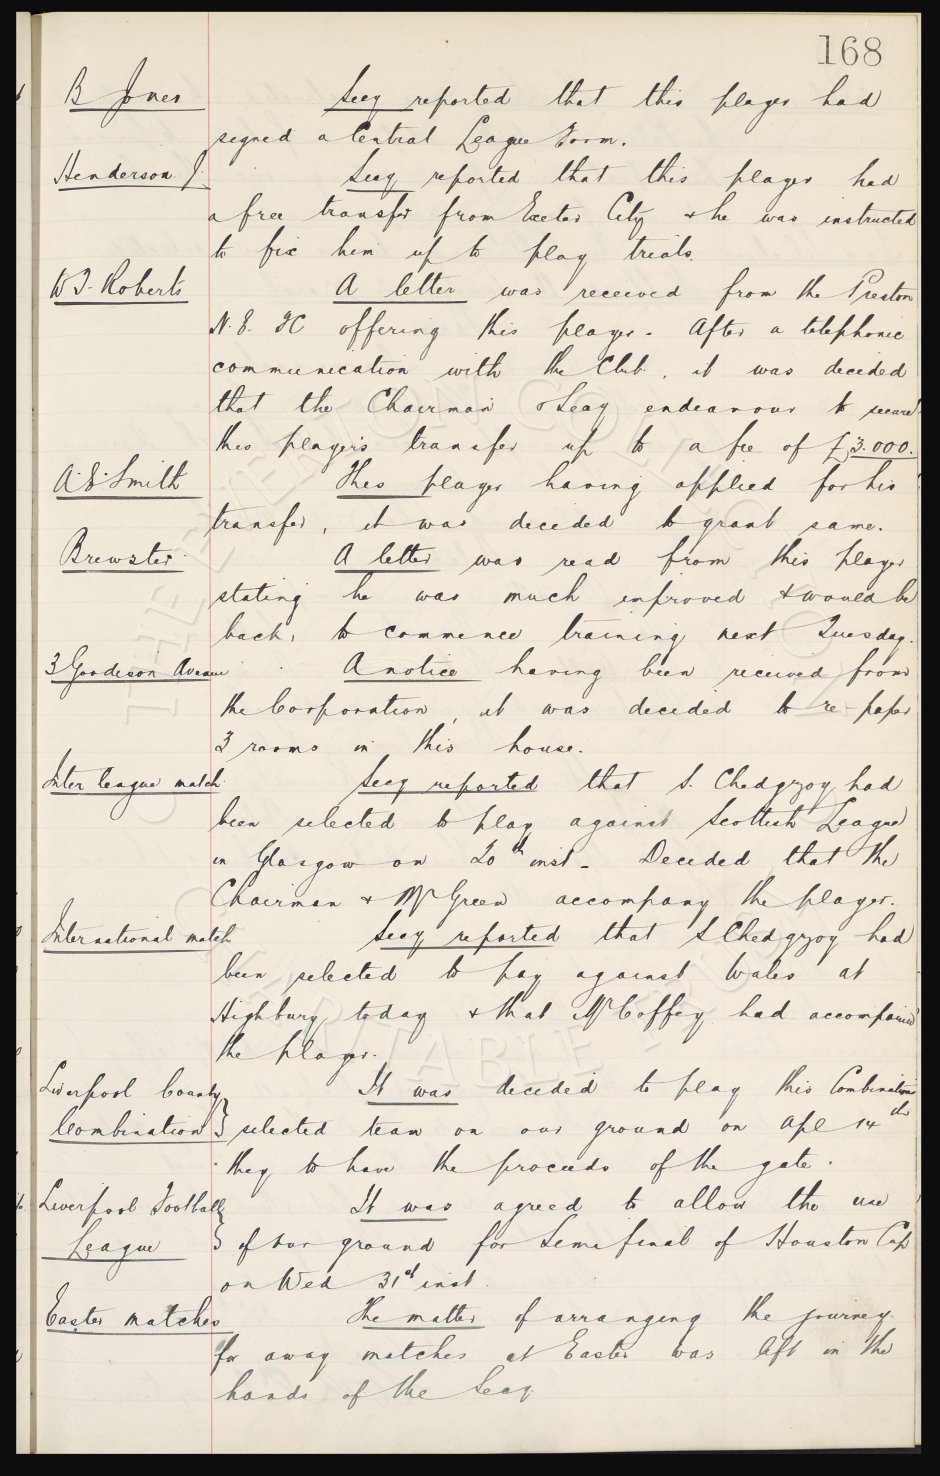 168
B Jones Secy reported that this player had
signed a Central League Form.
Henderson J. Secy reported that this player had
a free transfer from Exeter City & he was instructed
to fix him up to play trials.
W T. Roberts A letter was received from the Preston
N. E. FC offering this player. After a telephonic
communication with the Club, it was decided
that the Chairman & Secy endeavour to secure
this player's transfer up to a fee of £3.000.
A. E. Smith This player having applied for his
transfer, it was decided to grant same.
Brewster A letter was read from this player
stating he was much improved & would be
back, to commence training next Tuesday.
3 Goodison Avenue A notice having been received from
the Corporation, it was decided to re-paper
3 rooms in this house.
Inter league match Secy reported that S. Chedgzoy had
been selected to play against Scottish League
in Glasgow on 20th inst. Decided that the
Chairman & Mr Green accompany the player.
International match Secy reported that S Chedgzoy had
been selected to pay against Wales at
Highbury today & that Mr Coffey had accompanied
the player.
Liverpool County It was decided to play this Combinations
Combination } selected team on our ground on Apl 14th
they to have the proceeds of the gate.
Liverpool Football It was agreed to allow the use
League } of our ground for Semi final of Houston Cup
on Wed 31st inst.
Easter matches The matter of arranging the journey
for away matches at Easter was left in the
hands of the Secy.
THE EVERTON COLLECTION
CHARITABLE TRUST